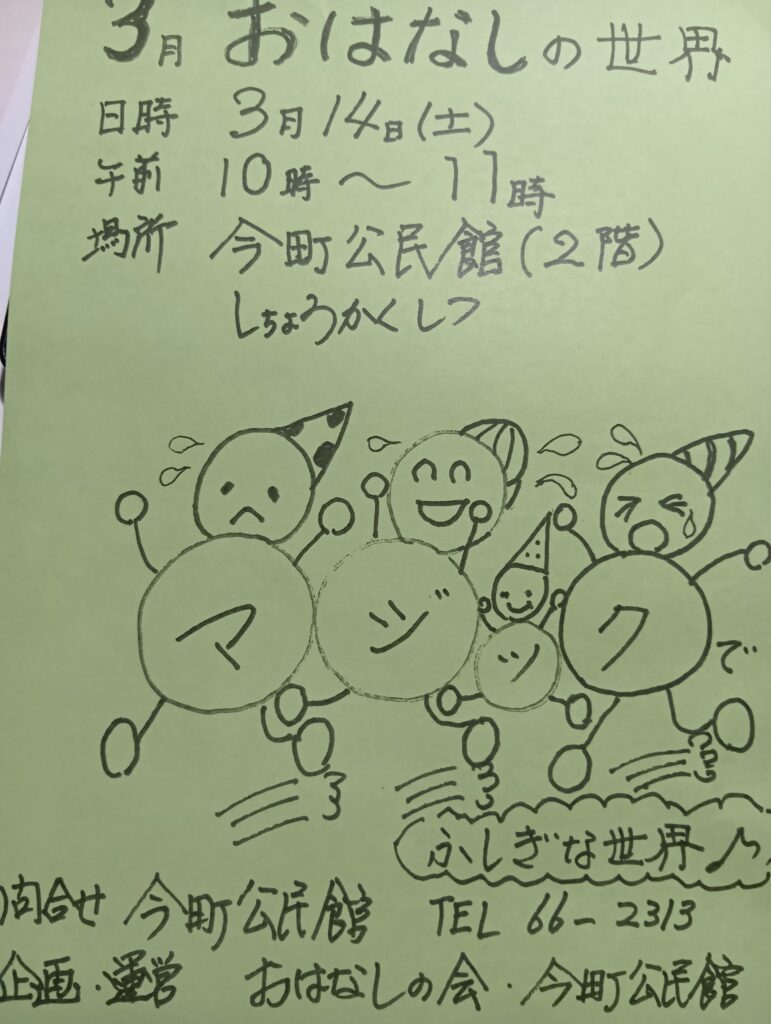 3月 おはなしの世界
日時 3月14日(土)
午前 10時～11時
場所 今町公民館(2階)
しちょうかくしつ
マジックで
ふしぎな世界♪
問合せ 今町公民館 TEL 66-2313
企画・運営 おはなしの会・今町公民館